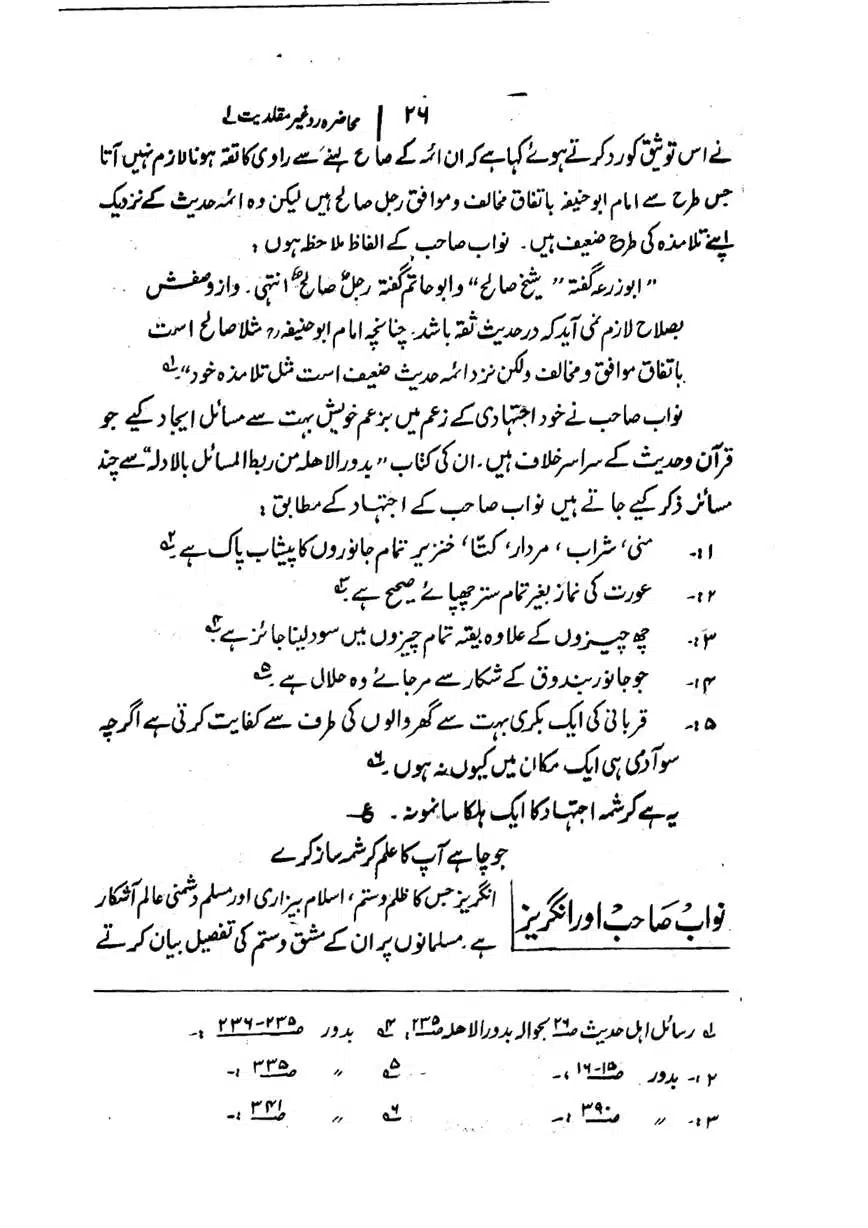 ۲۶ | محاضرہ رد غیر مقلدیت ۱
نے اس توثیق کو رد کرتے ہوئے کہا ہے کہ ان ائمہ کے صالح کہنے سے راوی کا ثقہ ہونا لازم نہیں آتا
جس طرح سے امام ابو حنیفہ باتفاق مخالف و موافق رجل صالح ہیں لیکن وہ ائمہ حدیث کے نزدیک
اپنے تلامذہ کی طرح ضعیف ہیں۔ نواب صاحب کے الفاظ ملاحظہ ہوں :
" ابوزرعہ گفتہ " شیخ صالح " وابو حاتم گفتہ رجل صالح انتہی۔ واز وصفش
بصلاح لازم نمی آید کہ در حدیث ثقہ باشد۔ چنانچہ امام ابو حنیفہ رح مثلا صالح است
باتفاق موافق و مخالف ولکن نزد ائمہ حدیث ضعیف است مثل تلامذہ خود"۔ ۱ے
نواب صاحب نے خود اجتہادی کے زعم میں بزعم خویش بہت سے مسائل ایجاد کیے جو
قرآن و حدیث کے سراسر خلاف ہیں۔ ان کی کتاب "بدور الاھلہ من ربط المسائل بالادلہ" سے چند
مسائل ذکر کیے جاتے ہیں نواب صاحب کے اجتہاد کے مطابق :
۱:- منی، شراب، مردار، کتّا، خنزیر تمام جانوروں کا پیشاب پاک ہے ۲ے
۲:- عورت کی نماز بغیر تمام ستر چھپائے صحیح ہے ۳ے
۳:- چھ چیزوں کے علاوہ بقیہ تمام چیزوں میں سود لینا جائز ہے ۴ے
۴:- جو جانور بندوق کے شکار سے مرجائے وہ حلال ہے۔ ۵ے
۵:- قربانی کی ایک بکری بہت سے گھر والوں کی طرف سے کفایت کرتی ہے اگرچہ
سو آدمی ہی ایک مکان میں کیوں نہ ہوں۔ ۶ے
یہ ہے کرشمہ اجتہاد کا ایک ہلکا سا نمونہ۔ ع
جو چاہے آپ کا علم کرشمہ ساز کرے
نواب صاحب اور انگریز
انگریز جس کا ظلم و ستم، اسلام بیزاری اور مسلم دشمنی عالم آشکار
ہے۔ مسلمانوں پر ان کے مشق و ستم کی تفصیل بیان کرتے
۱ے رسائل اہل حدیث ص۲۶ بحوالہ بدور الاھلہ ص۲۳۵، ۴ے بدور ص۲۳۵-۲۳۶ :-
۲:- بدور ص۱۵-۱۶ :- ۵ے " ص۳۳۵ :-
۳:- " ص۳۹۰ :- ۶ے " ص۳۴۱ :-